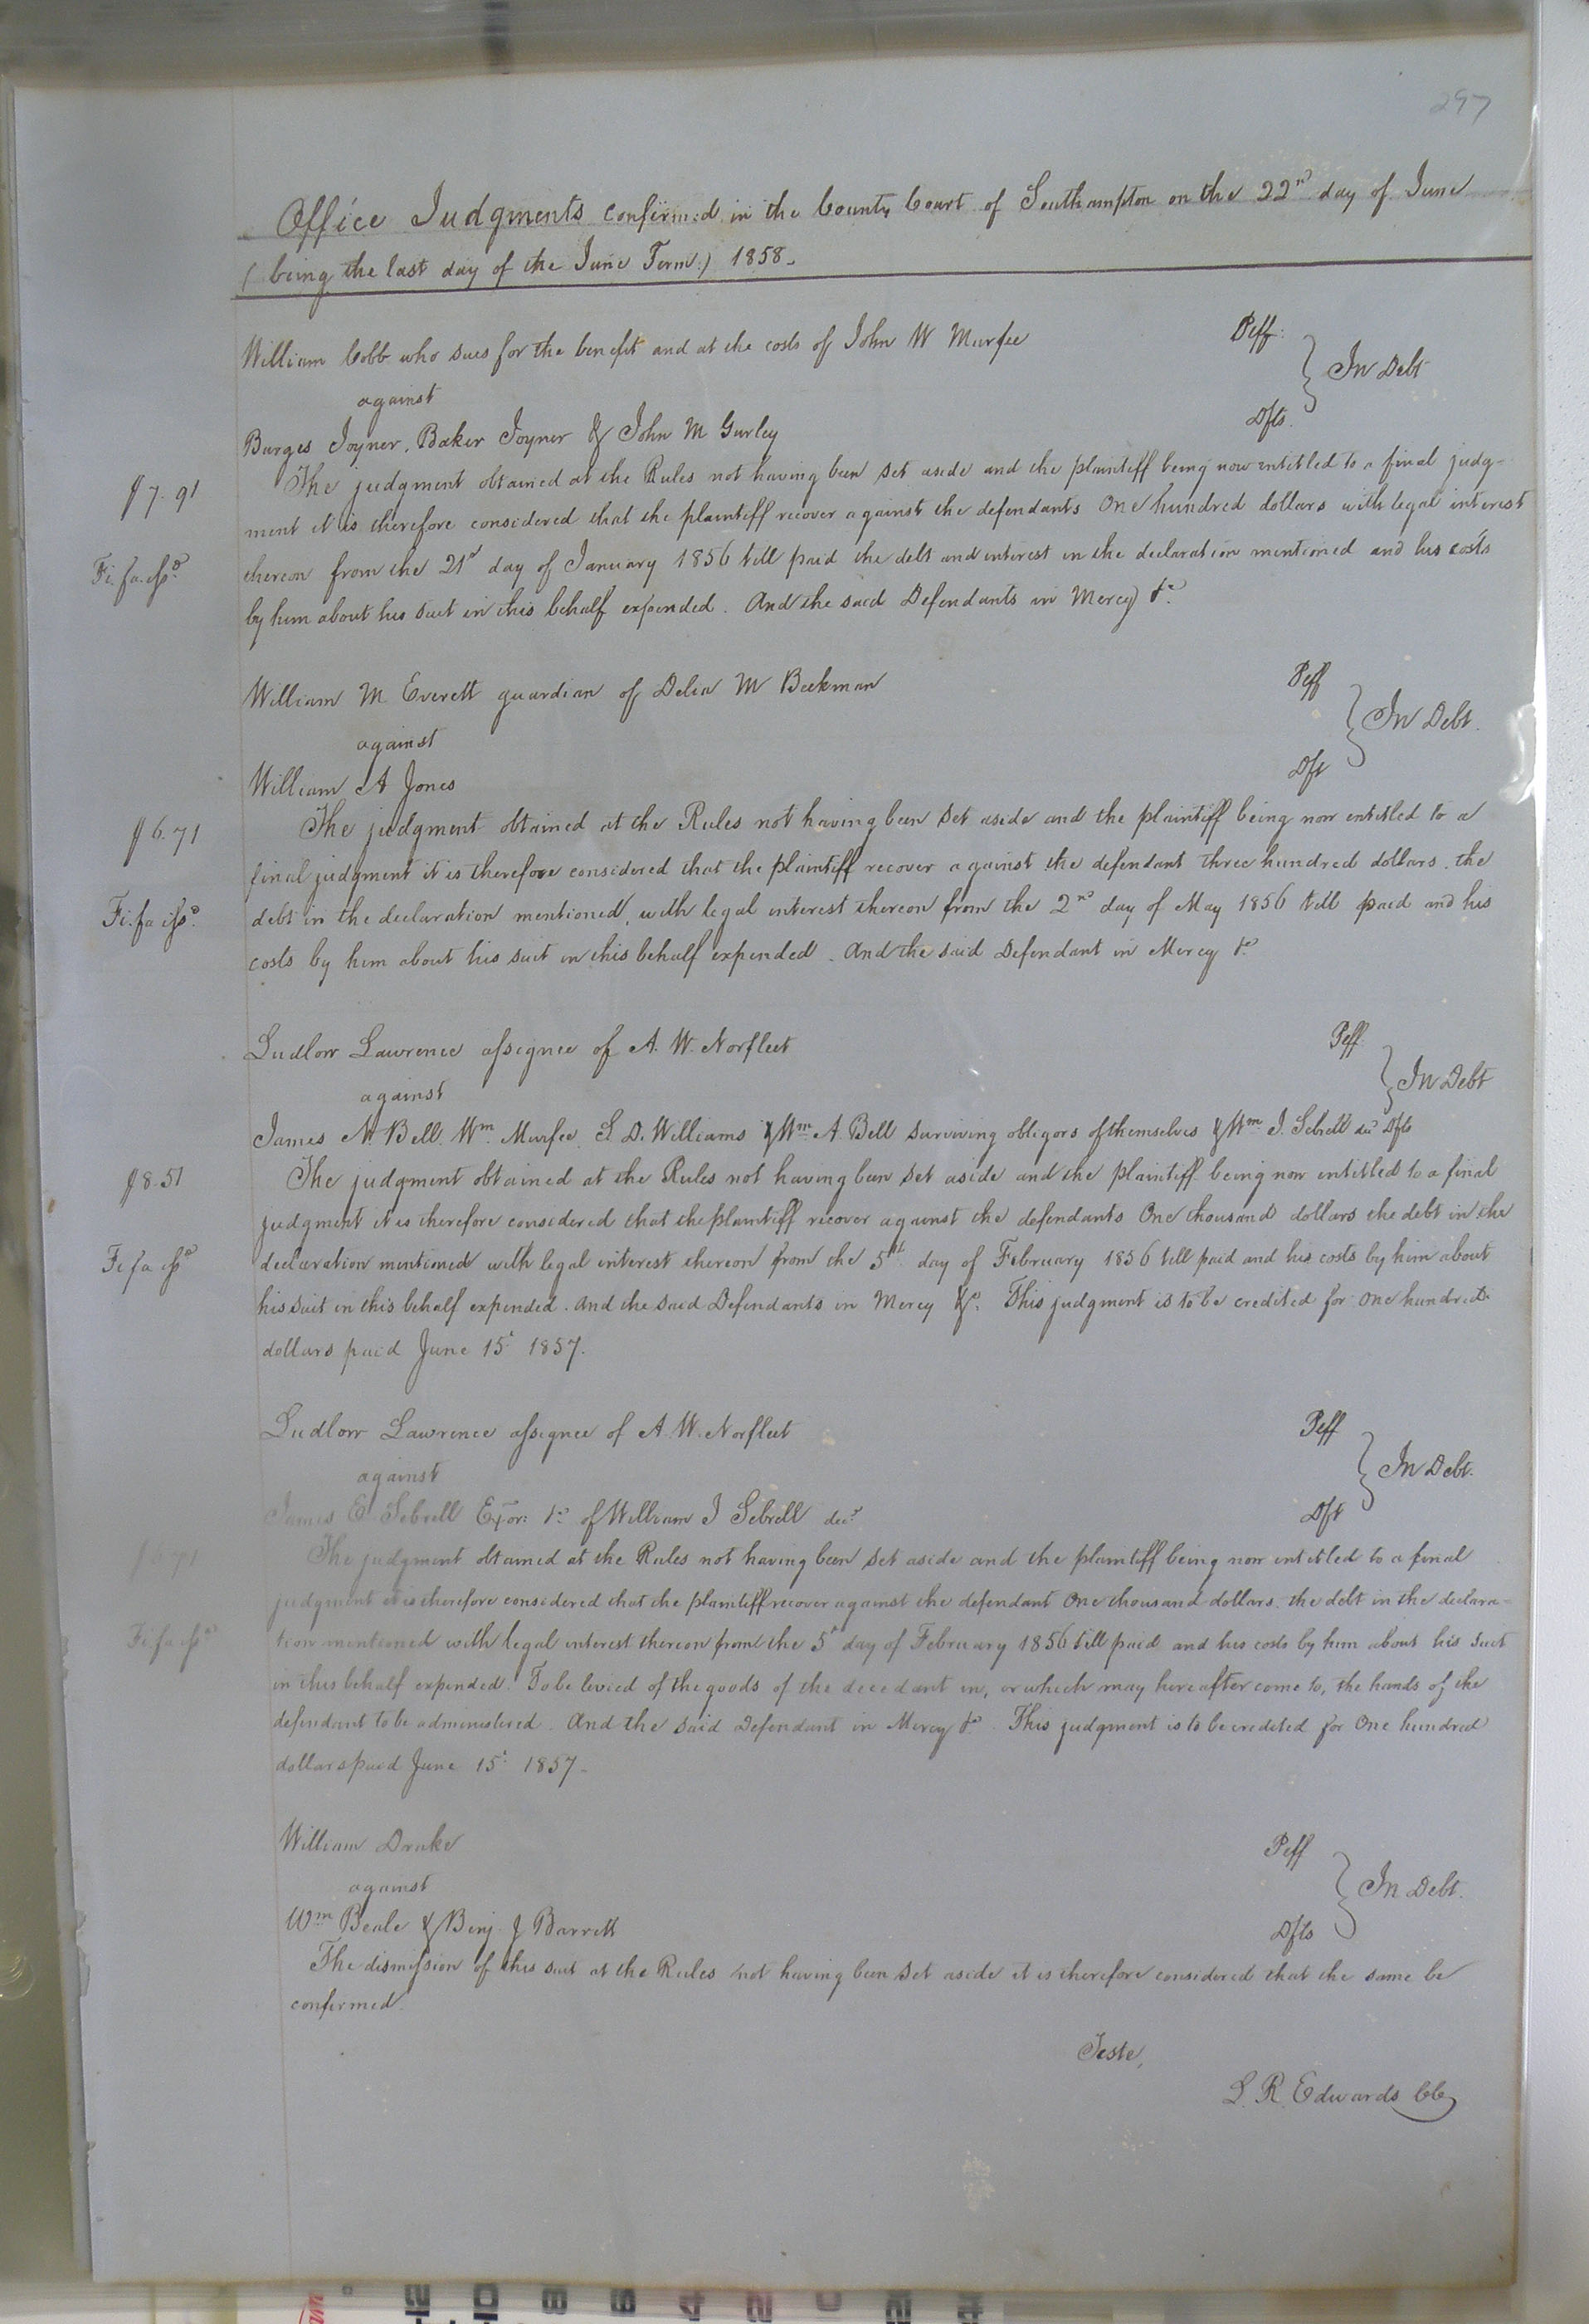 297
Office Judgments confirmed in the County Court of Southampton on the 22nd day of June
(being the last day of the June Term) 1858.
William Cobb who sues for the benefit and at the costs of John W Murfee Plff.
In Debt
against
Burges Joyner, Baker Joyner & John M Gurley Dfts.
The judgment obtained at the Rules not having been set aside and the plaintiff being now entitled to a final judg-
$7.91
ment it is therefore considered that the plaintiff recover against the defendants One hundred dollars with legal interest
thereon from the 21st day of January 1856 till paid the debt and interest in the declaration mentioned and his costs
Fi. fa. issd.
by him about his suit in this behalf expended. And the said Defendants in Mercy &c.
William M. Everett guardian of Delia M Beekman Plff
In Debt.
against
William A Jones Dft
The judgment obtained at the Rules not having been set aside and the plaintiff being now entitled to a
$6.71
final judgment it is therefore considered that the plaintiff recover against the defendant three hundred dollars. the
debt in the declaration mentioned, with legal interest thereon from the 2nd day of May 1856 till paid and his
Fi. fa issd.
costs by him about his suit in this behalf expended. And the said Defendant in Mercy &c
Ludlow Lawrence assignee of A. W. Norfleet Plff.
In Debt
against
James N. Bell. Wm. Murfee S. D. Williams & Wm A. Bell surviving obligors of themselves & Wm J. Sebrell decd Dfts
The judgment obtained at the Rules not having been set aside and the plaintiff being now entitled to a final
$8.51
judgment it is therefore considered that the plaintiff recover against the defendants One thousand dollars the debt in the
declaration mentioned with legal interest thereon from the 5th day of February 1856 till paid and his costs by him about
Fi fa issd
his suit in this behalf expended. And the said Defendants in Mercy &c. This judgment is to be credited for One hundred
dollars paid June 15th 1857.
Ludlow Lawrence assignee of A. W. Norfleet Plff
In Debt.
against
James E Sebrell Exor: &c of William J Sebrell decd. Dft
The judgment obtained at the Rules not having been set aside and the plaintiff being now entitled to a final
$6.71
judgment it is therefore considered that the plaintiff recover against the defendant One thousand dollars. the debt in the declara-
tion mentioned with legal interest thereon from the 5th day of February 1856 till paid and his costs by him about his suit
Fi fa issd
in this behalf expended. To be levied of the goods of the decedant in, or which may hereafter come to, the hands of the
defendant to be administered. And the said Defendant in Mercy &c. This judgment is to be credited for One hundred
dollars paid June 15th 1857.
William Drake Plff
In Debt.
against
Wm Beale & Benj. J Barrett Dfts
The dismission of this suit at the Rules not having been set aside it is therefore considered that the same be
confirmed.
Teste,
L. R. Edwards CC